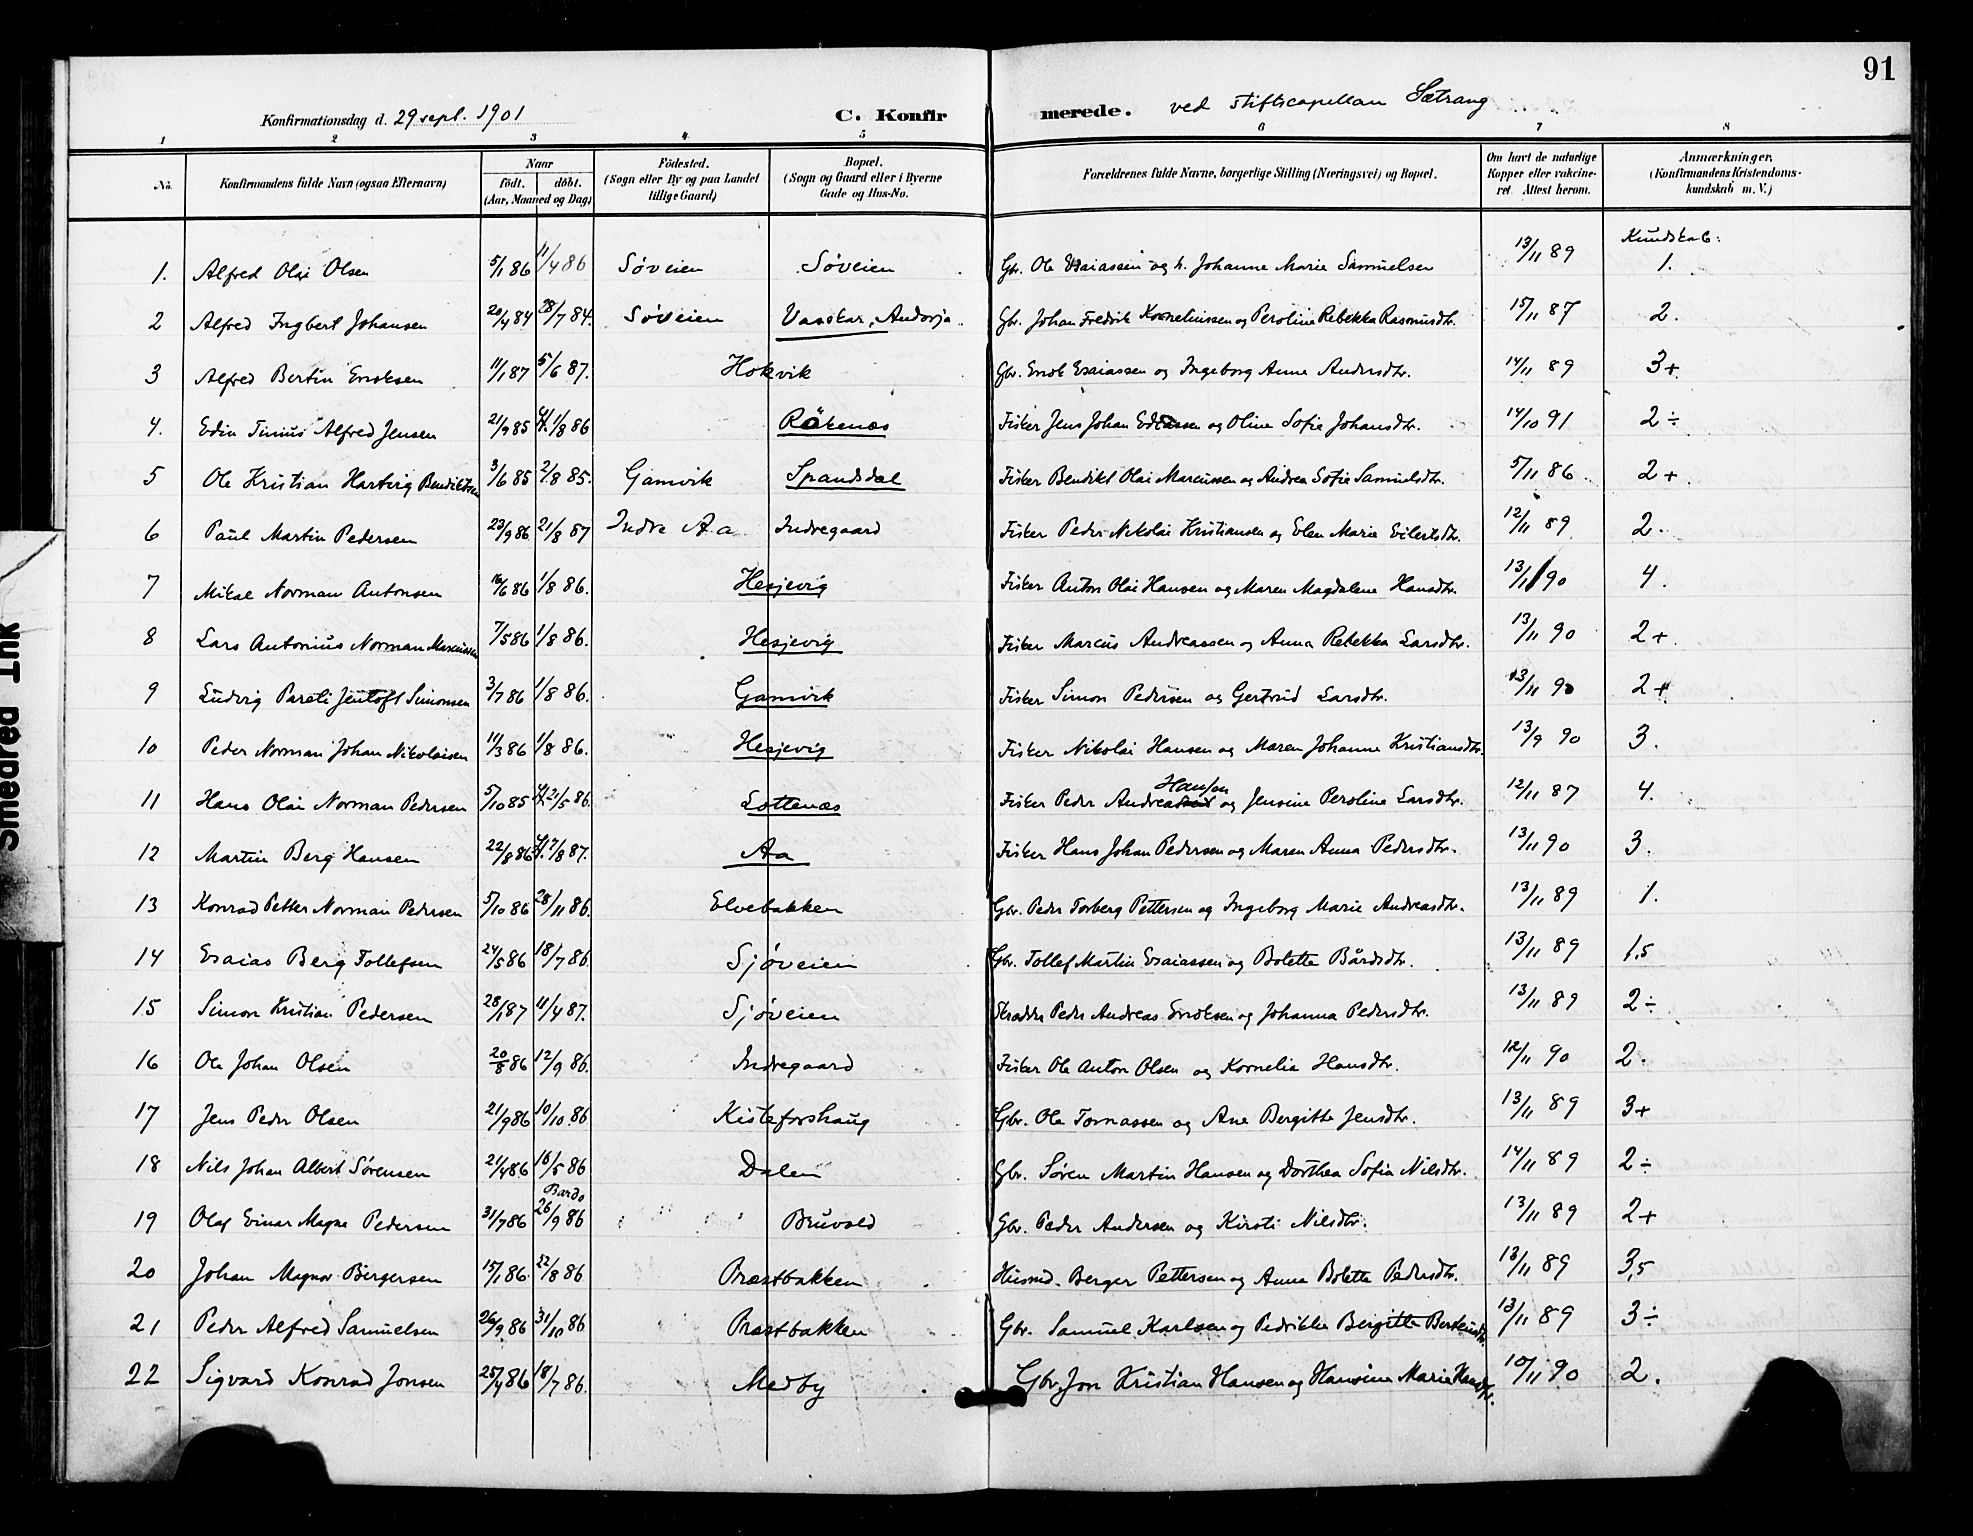 91
Konfirmationsdag d. 29 sept. 1901 C. Konfirmerede. ved stiftscapellan Sætrang
1 2 3 4 5 6 7 8
No. Konfirmandens fulde Navn (ogsaa Efternavn) Naar födt. döbt. (Aar, Maaned og Dag) Födested. (Sogn eller By og paa Landet tillige Gaard) Bopæl. (Sogn og Gaard eller i Byerne Gade og Hus-No. Forældrenes fulde Navne, borgerlige Stilling (Næringsvei) og Bopæl. Om havt de naturlige Kopper eller vakcineret. Attest herom. Anmærkninger. (Konfirmandens Kristendomskundskab m. V.)
Kundskab:
1. Alfred Olai Olsen 5/1 86 11/4 86 Søveien Søveien Gbr. Ole Esaiassen og h. Johanne Marie Samuelsen 13/11 89 1.
2 Alfred Ingbert Johansen 20/4 84 28/7 84. Søveien Vasskar, Andørja. Gbr. Johan Fredrik Korneliussen og Peroline Rebekka Rasmusdtr. 15/11 87 2.
3 Alfred Bertin Eriksen 11/1 87 5/6 87. Hokvik Gbr. Erik Esaiassen og Ingeborg Anne Andersdtr. 14/11 89 3+
4. Edin Tinius Alfred Jensen 21/9 85 1/8 86 Røkenæs Fisker Jens Johan og Oline Sofie Johansdtr. 14/10 91 2÷
5 Ole Kristian Hartvig Bendiktsen 3/6 85 2/8 85. Gamvik Spandsdal Fisker Bendikt Olai Marcussen og Andrea Sofie Samuelsdtr. 5/11 86 2+
6 Paul Martin Pedersen 23/9 86 21/8 87 Indre Aa Indregaard Fisker Peder Nikolai Kristiansen og Elen Marie Eilertsdtr. 12/11 89 2.
7 Mikal Norman Antonsen 16/6 86 1/8 86. Hesjevig Fisker Anton Olai Hansen og Maren Magdalene Hansdtr. 13/11 90 4.
8 Lars Antonius Norman Marcussen 7/5 86 1/8 86. Hesjevig Fisker Marcus Andreassen og Anna Rebekka Larsdtr. 13/11 90 2+
9 Ludvig Pareli Jentoft Simonsen 3/7 86 1/8 86. Gamvik Fisker Simon Pedersen og Gertrud Larsdtr. 13/11 90 2+
10 Peder Norman Johan Nikolaisen 11/3 86 1/8 86. Hesjevig Fisker Nikolai Hansen og Maren Johanne Kristiansdtr. 13/9 90 3.
11 Hans Olai Norman Pedersen 5/10 85 2/5 86. Lottenæs Fisker Peder Andreas Hansen og Jensine Peroline Larsdtr. 12/11 87 4.
12 Martin Berg Hansen 22/8 86 7/8 87. Aa Fisker Hans Johan Pedersen og Maren Anna Pedersdtr. 13/11 90 3.
13 Konrad Petter Norman Pedersen 5/10 86 28/11 86. Elvebakken Gbr. Peder Torberg Pettersen og Ingeborg Marie Andreasdtr. 13/11 89 1.
14 Esaias Berg Tollefsen 24/5 86 18/7 86. Sjøveien Gbr. Tollef Martin Esaiassen og Bolette Bårdsdtr. 13/11 89 1,5
15 Simon Kristian Pedersen 28/1 87 11/4 87. Sjøveien Skrædder Peder Andreas Eriksen og Johanna Pedersdtr. 13/11 89 2÷
16 Ole Johan Olsen 20/8 86 12/9 86. Indregaard Fisker Ole Anton Olsen og Kornelia Hansdtr. 12/11 90 2.
17 Jens Peder Olsen 21/9 86 10/10 86 Kisteforshaug Gbr. Ole Tomassen og Ane Bergitte Jensdtr. 13/11 89 3+
18 Nils Johan Albert Sørensen 21/4 86 16/5 86 Dalen Gbr. Søren Martin Hansen og Dorthea Sofia Nilsdtr. 14/11 89 2÷
19 Olaf Einar Magne Pedersen 31/7 86 Bardo 26/9 86 Bruvold Gbr. Peder Andersen og Kirsti Nilsdtr. 13/11 89 2+
20 Johan Magnor Bergersen 15/1 86. 22/8 86 Præstbakken Husmd. Berger Pettersen og Anna Bolette Pedersdtr. 13/11 89 3,5
21 Peder Alfred Samuelsen 26/9 86 31/10 86 Præstbakken Gbr. Samuel Karlsen og Pedrikke Bergitte 13/11 89 3÷
22 Sigvard Konrad Jonsen 25/4 86 18/7 86. Medby Gbr. Jon Kristian Hansen og Hansine Marie Hansdtr. 10/11 90 2.
Smedred Ink